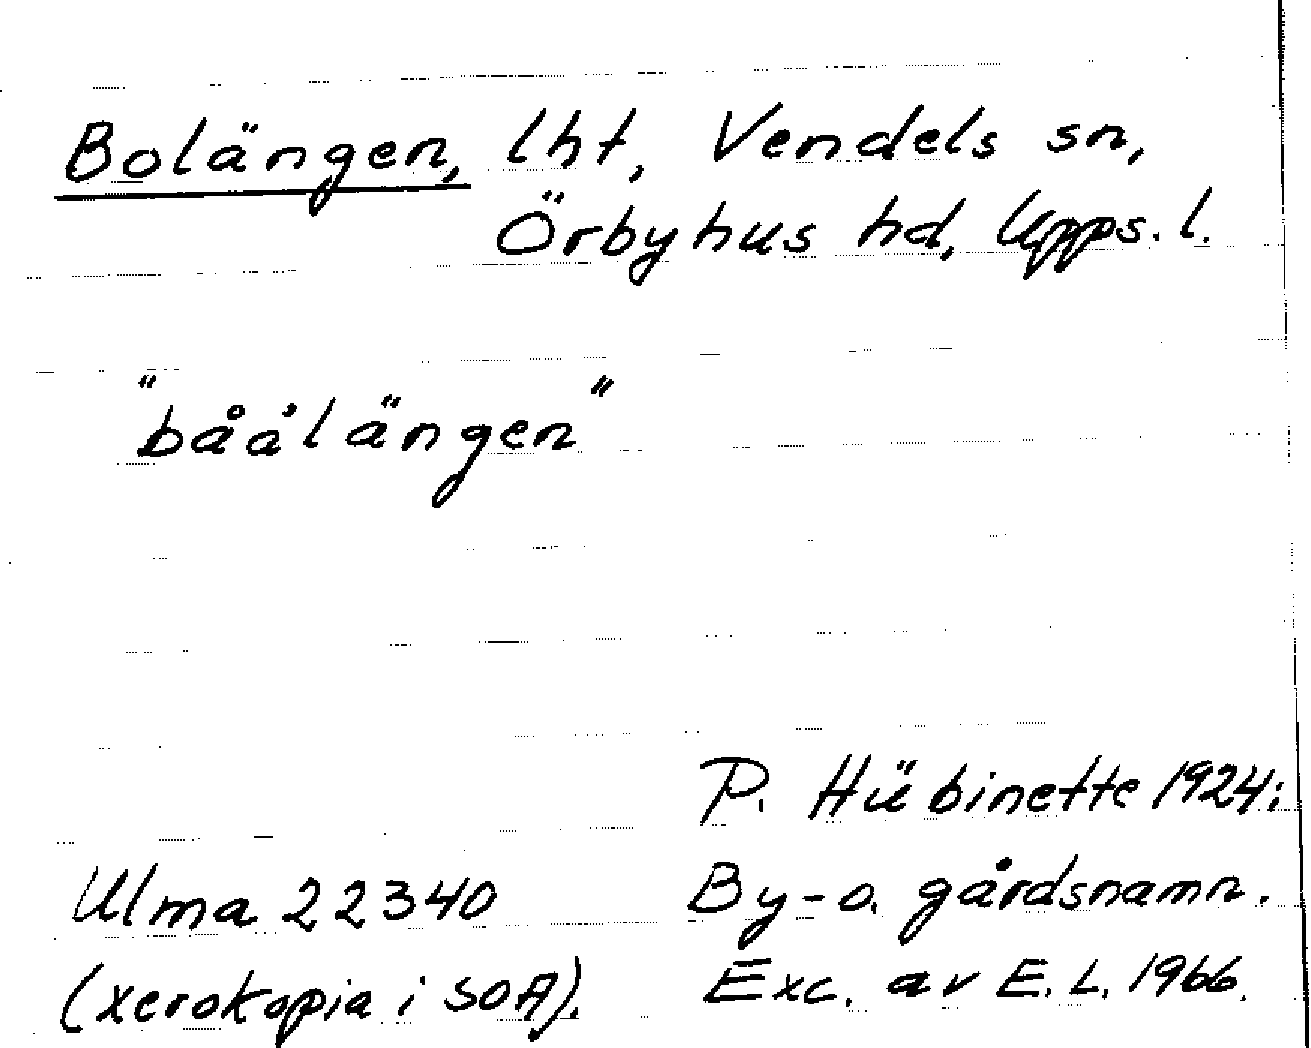 Bolängen, lht, Vendels sn,
Örbyhus hd, Upps. l.
"båålängen"
P. Hübinette 1924:
By- o. gårdsnamn.
Exc. av E. L. 1966.
Ulma 22340
(xerokopia i SOA).